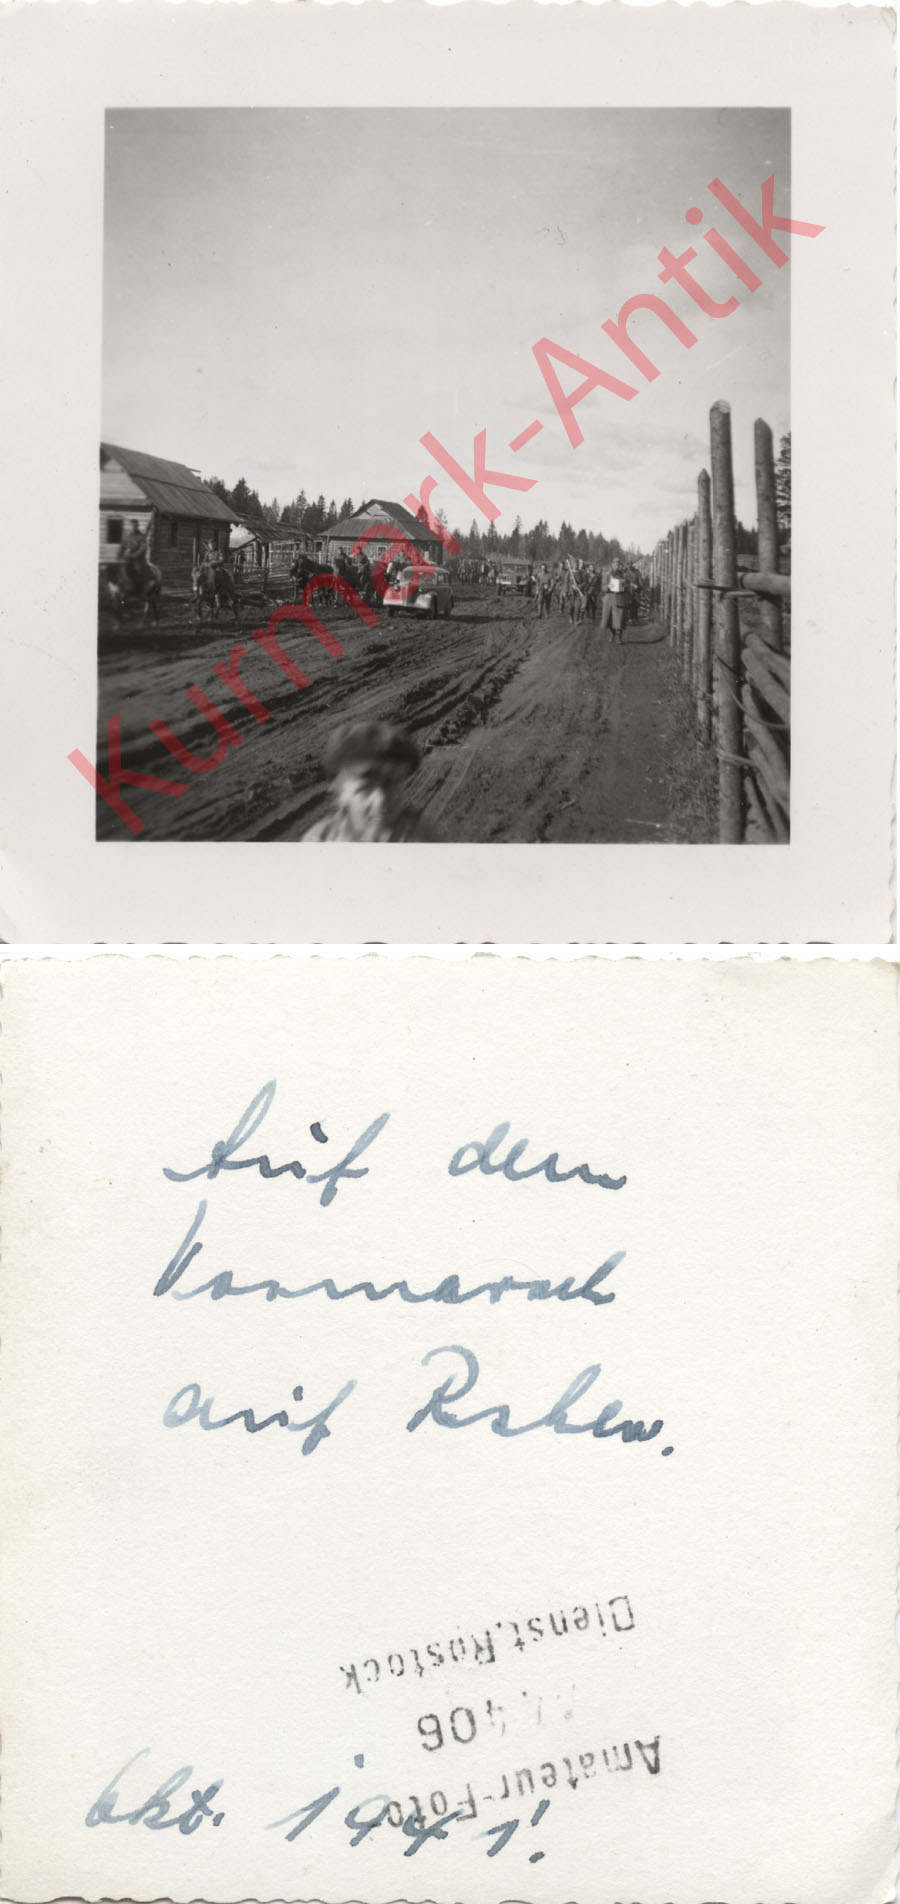 Kurmark-Antik
Auf dem
Vormarsch
auf Rshew.
Okt. 1941!
Amateur-Foto
406
Dienst, Rostock